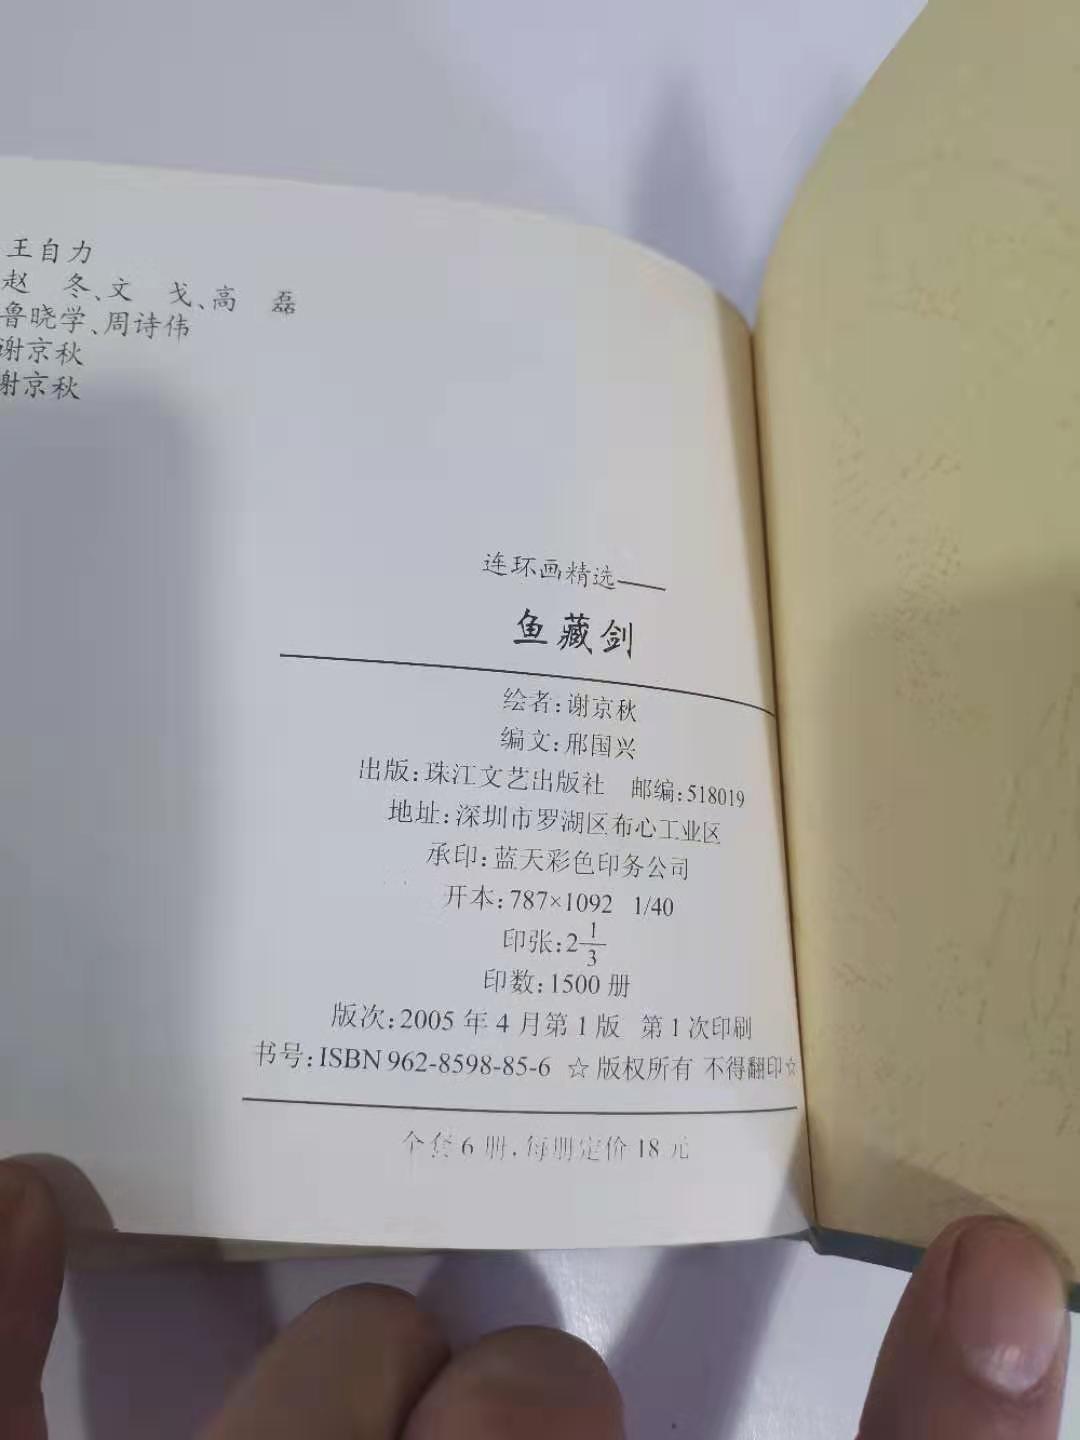 王自力
赵 冬、文 戈、高 磊
鲁晓学、周诗伟
谢京秋
谢京秋
连环画精选——
鱼藏剑
绘者:谢京秋
编文:邢国兴
出版:珠江文艺出版社 邮编:518019
地址:深圳市罗湖区布心工业区
承印:蓝天彩色印务公司
开本:787×1092 1/40
印张:2 1/3
印数:1500 册
版次:2005 年 4 月第 1 版 第 1 次印刷
书号:ISBN 962-8598-85-6 ☆ 版权所有 不得翻印☆
全套 6 册,每册定价 18 元